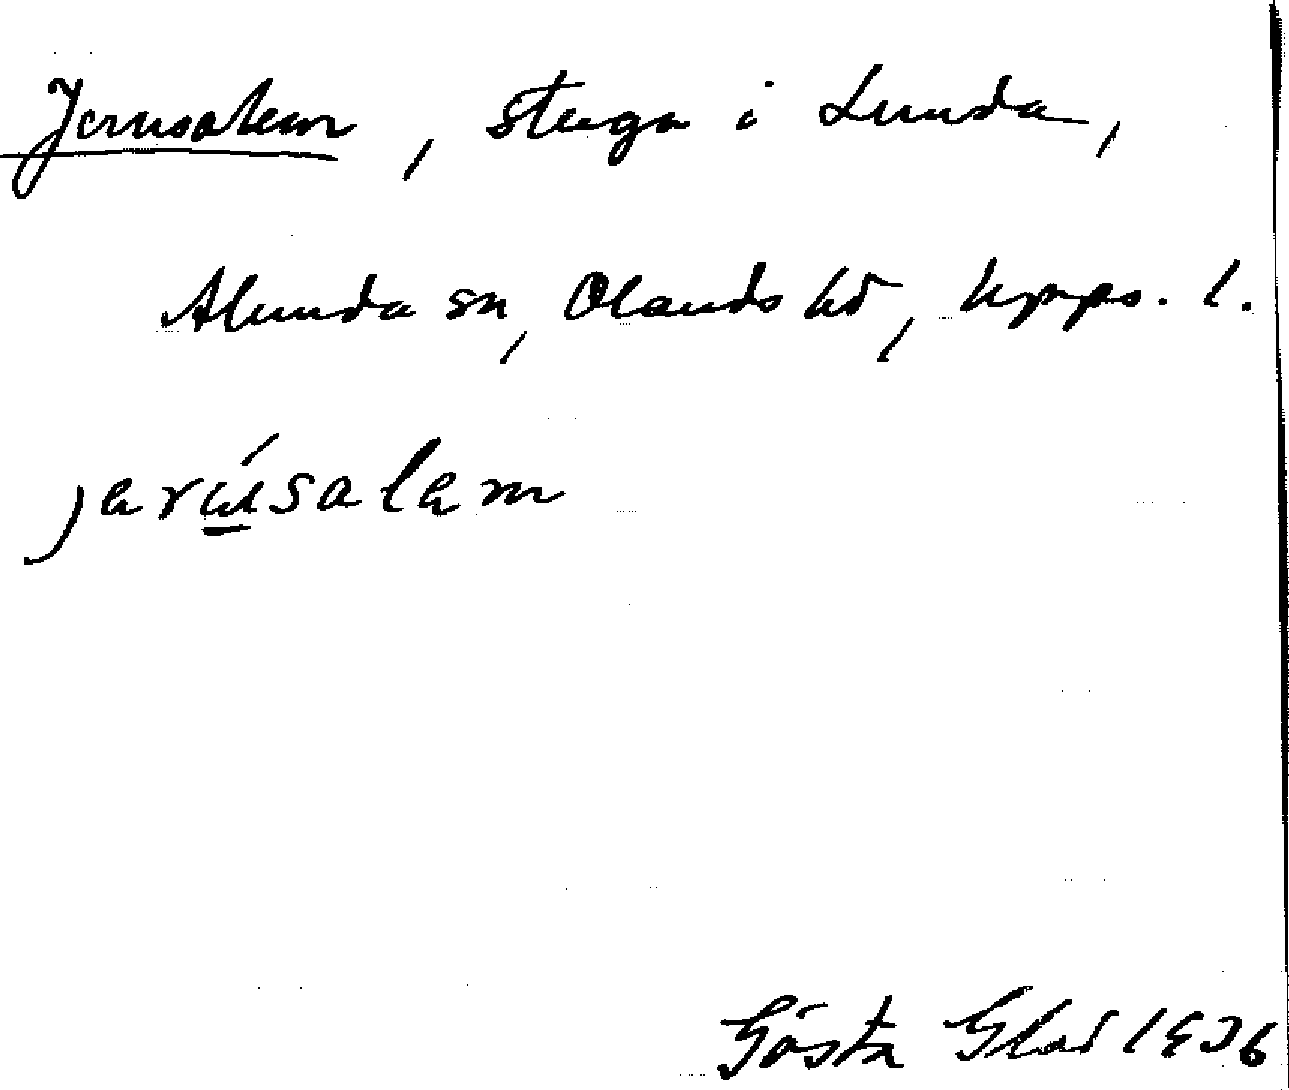 Jerusalem, stuga i Lunda,
Alunda sn, Olands hd, Upps. l.
jerúsalem
Gösta Glad 1936